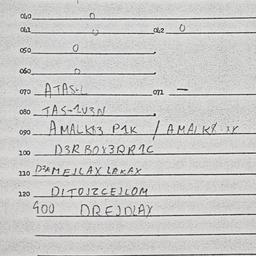 040 0
041 0 042 0
050 0
060 0
070 ATAS-L 071 —
080 TAS-1U3N
090 AMALK83 P1K / AMALK8
100 D3RBOY3RR1C
110 D3AMEJLAX LAKAX
120 DITOJZCEJLOM
400 DREJDLAY